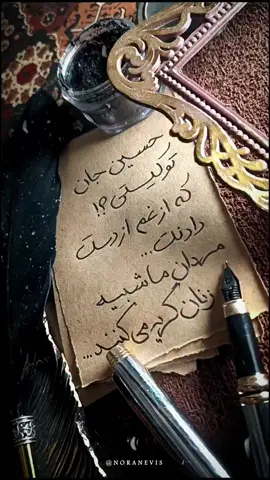 حسین جان
تو کیستی؟!
که از غم از دست
دادنت...
مردان ما شبیه
زنان گریه می‌کنند...
@NORANEVIS